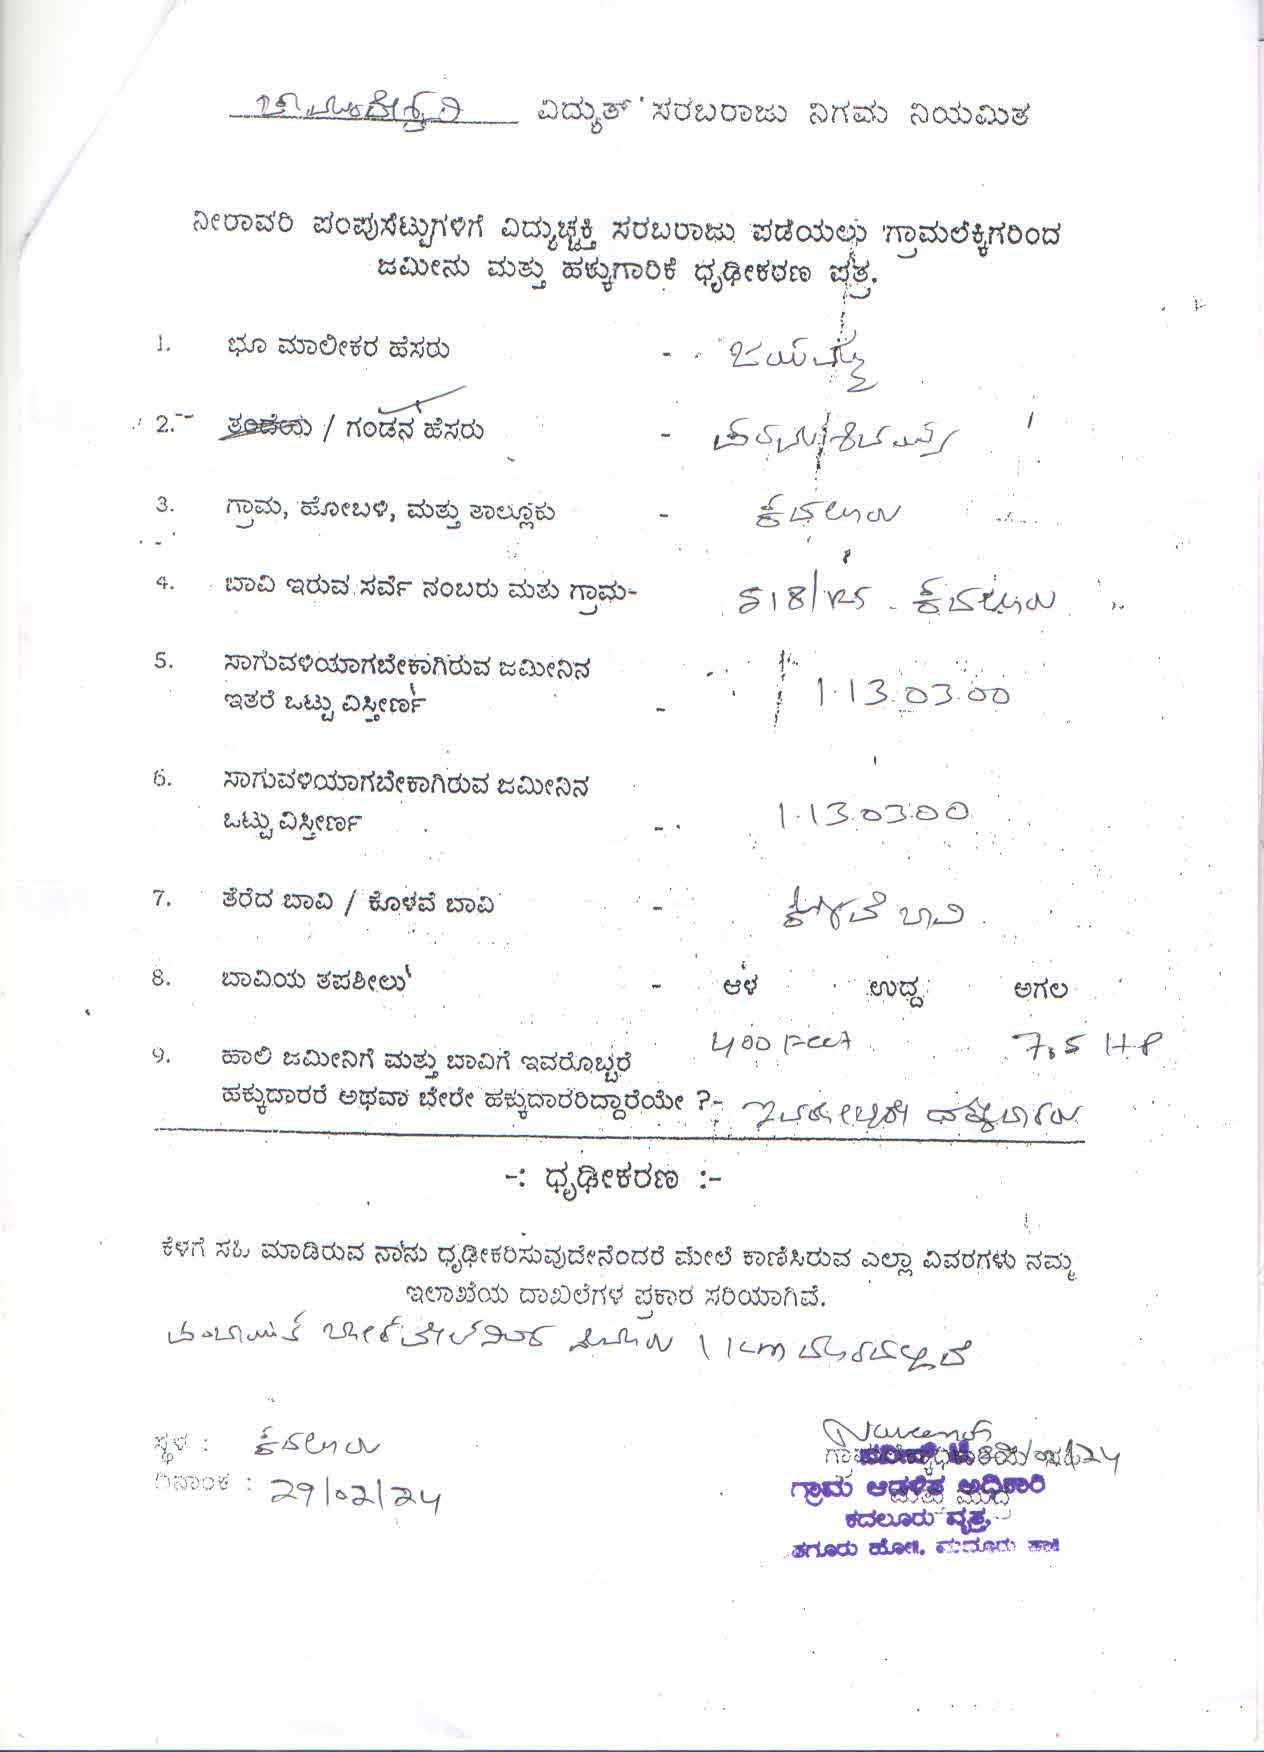 ಚಾಮುಂಡೇಶ್ವರಿ ವಿದ್ಯುತ್ ಸರಬರಾಜು ನಿಗಮ ನಿಯಮಿತ
ನೀರಾವರಿ ಪಂಪುಸೆಟ್ಟುಗಳಿಗೆ ವಿದ್ಯುಚ್ಛಕ್ತಿ ಸರಬರಾಜು ಪಡೆಯಲು ಗ್ರಾಮಲೆಕ್ಕಿಗರಿಂದ
ಜಮೀನು ಮತ್ತು ಹಕ್ಕುಗಾರಿಕೆ ಧೃಢೀಕರಣ ಪತ್ರ.
1. ಭೂ ಮಾಲೀಕರ ಹೆಸರು - ಜಯಮ್ಮ
2. ತಂದೆಯ / ಗಂಡನ ಹೆಸರು -
3. ಗ್ರಾಮ, ಹೋಬಳಿ, ಮತ್ತು ತಾಲ್ಲೂಕು - ಕದಲೂರು
4. ಬಾವಿ ಇರುವ ಸರ್ವೆ ನಂಬರು ಮತು ಗ್ರಾಮ- 518/ - ಕದಲೂರು
5. ಸಾಗುವಳಿಯಾಗಬೇಕಾಗಿರುವ ಜಮೀನಿನ
ಇತರೆ ಒಟ್ಟು ವಿಸ್ತೀರ್ಣ - 1.13.03.00
6. ಸಾಗುವಳಿಯಾಗಬೇಕಾಗಿರುವ ಜಮೀನಿನ
ಒಟ್ಟು ವಿಸ್ತೀರ್ಣ - 1.13.03.00
7. ತೆರೆದ ಬಾವಿ / ಕೊಳವೆ ಬಾವಿ - ಕೊಳವೆ ಬಾವಿ
8. ಬಾವಿಯ ತಪಶೀಲು - ಆಳ ಉದ್ದ ಅಗಲ
400 Feet 7.5 HP
9. ಹಾಲಿ ಜಮೀನಿಗೆ ಮತ್ತು ಬಾವಿಗೆ ಇವರೊಬ್ಬರೆ
ಹಕ್ಕುದಾರರೆ ಅಥವಾ ಬೇರೇ ಹಕ್ಕುದಾರರಿದ್ದಾರೆಯೇ ?- ಇವರೊಬ್ಬರೇ ಹಕ್ಕುದಾರರು
-: ಧೃಢೀಕರಣ :-
ಕೆಳಗೆ ಸಹಿ ಮಾಡಿರುವ ನಾನು ಧೃಢೀಕರಿಸುವುದೇನೆಂದರೆ ಮೇಲೆ ಕಾಣಿಸಿರುವ ಎಲ್ಲಾ ವಿವರಗಳು ನಮ್ಮ
ಇಲಾಖೆಯ ದಾಖಲೆಗಳ ಪ್ರಕಾರ ಸರಿಯಾಗಿವೆ.
ಸ್ಥಳ : ಕದಲೂರು
ದಿನಾಂಕ : 29/02/24
ಗ್ರಾಮ ಆಡಳಿತ ಅಧಿಕಾರಿ
ಕದಲೂರು ವೃತ್ತ,
ತಗೂರು ಹೋ||. ಮದ್ದೂರು ತಾ||